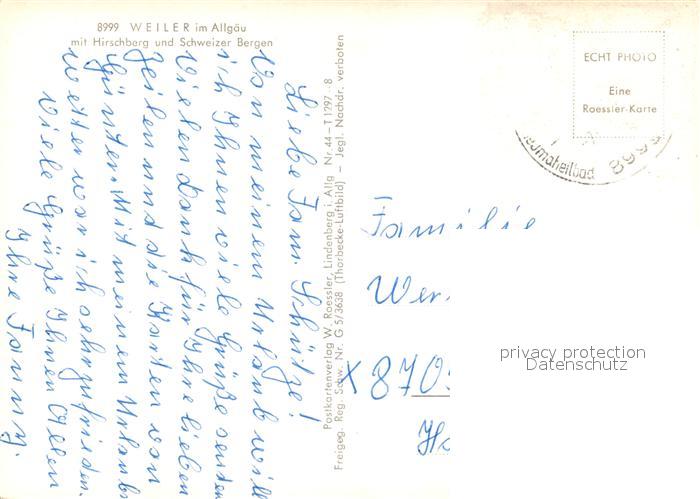 8999 WEILER im Allgäu
mit Hirschberg und Schweizer Bergen
Liebe Fam. Schütze!
Von meinem Urlaub will
ich Ihnen viele Grüße senden
Vielen Dank für Ihre lieben
Zeilen und die Karten von
Günter. Mit meinem Urlaub
wetter war ich sehr zufrieden.
Viele Grüße Ihnen Allen
Ihre Fanny.
Postkartenverlag W. Roessler, Lindenberg i. Allg Nr. 44 – T 1297 - 8
Freigeg. Reg. Schw. Nr. G 5/3638 (Thorbecke-Luftbild) — Jegl. Nachdr. verboten
ECHT PHOTO
Eine
Roessler-Karte
8999
Familie
Wer
X 870
privacy protection
Datenschutz